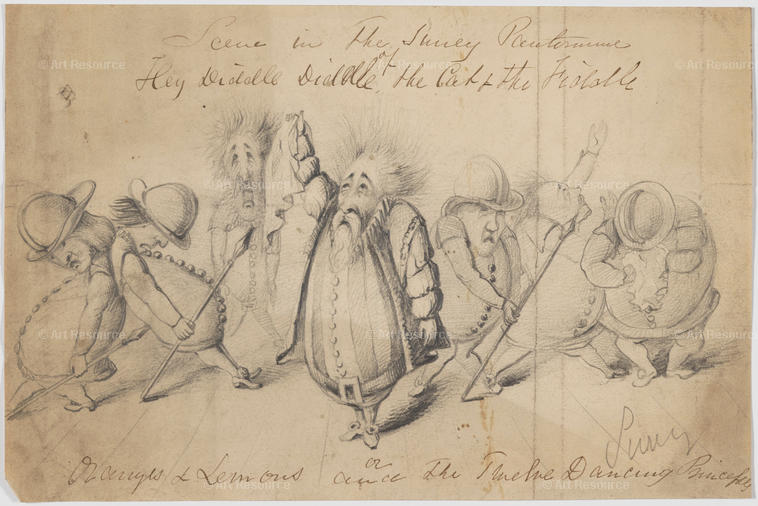 Scene in the Surrey Pantomime
of
Hey Diddle Diddle the Cat & the Fiddle
Surrey
Oranges & Lemons or and the Twelve Dancing Princesses
© Art Resource
© Art Resource
© Art Resource
© Art Resource
© Art Resource
© Art Resource
© Art Resource
© Art Resource
© Art Resource